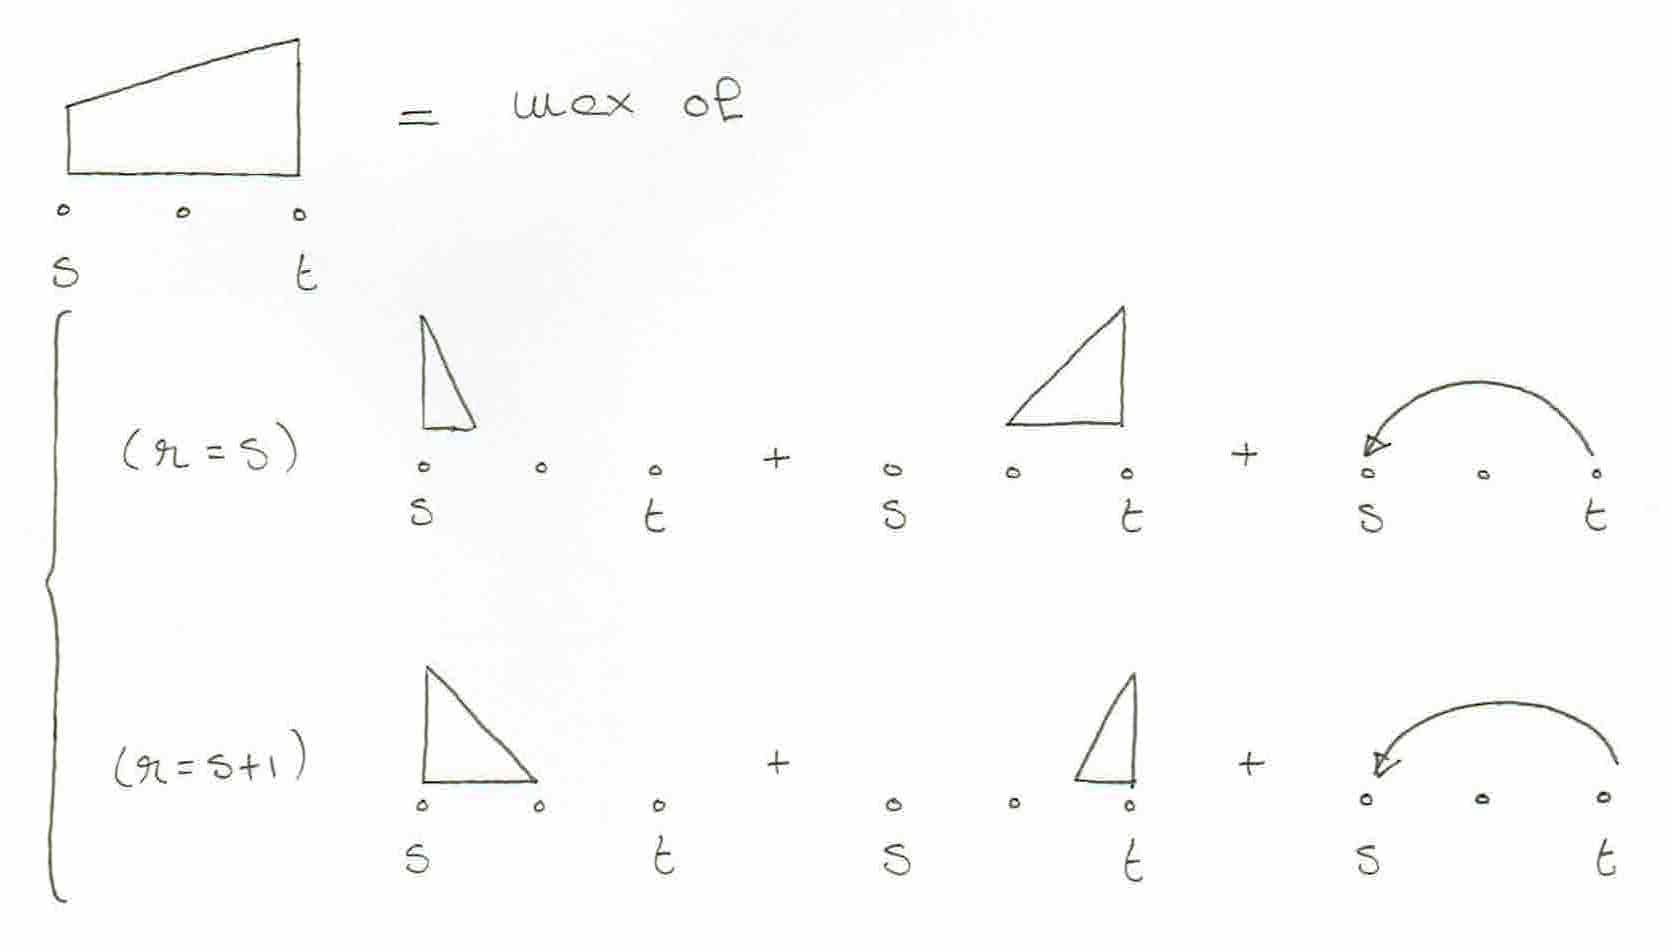 = max of
s t
(r = s) s t + s t + s t
(r = s+1) s t + s t + s t